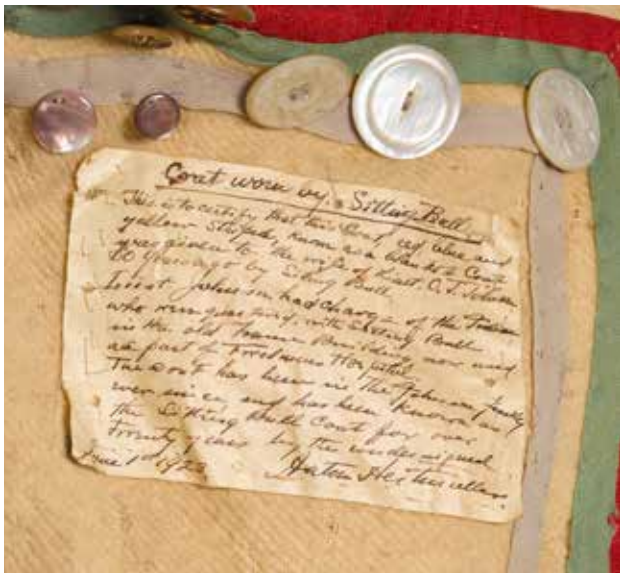 Coat worn by Sitting Bull
This is to certify that this Coat, of blue and
yellow Striped, known as a blanket Coat
was given to the wife of Lieut. C. T. Johnson
by Sitting Bull
Lieut Johnson had charge of the Indian
who was with Sitting Bull
in the old Building now used
as part of Hospital
The coat has been in the Johnson family
ever since, and has been known as
the Sitting Bull Coat for over
Twenty years by the undersigned
June 1st 1923